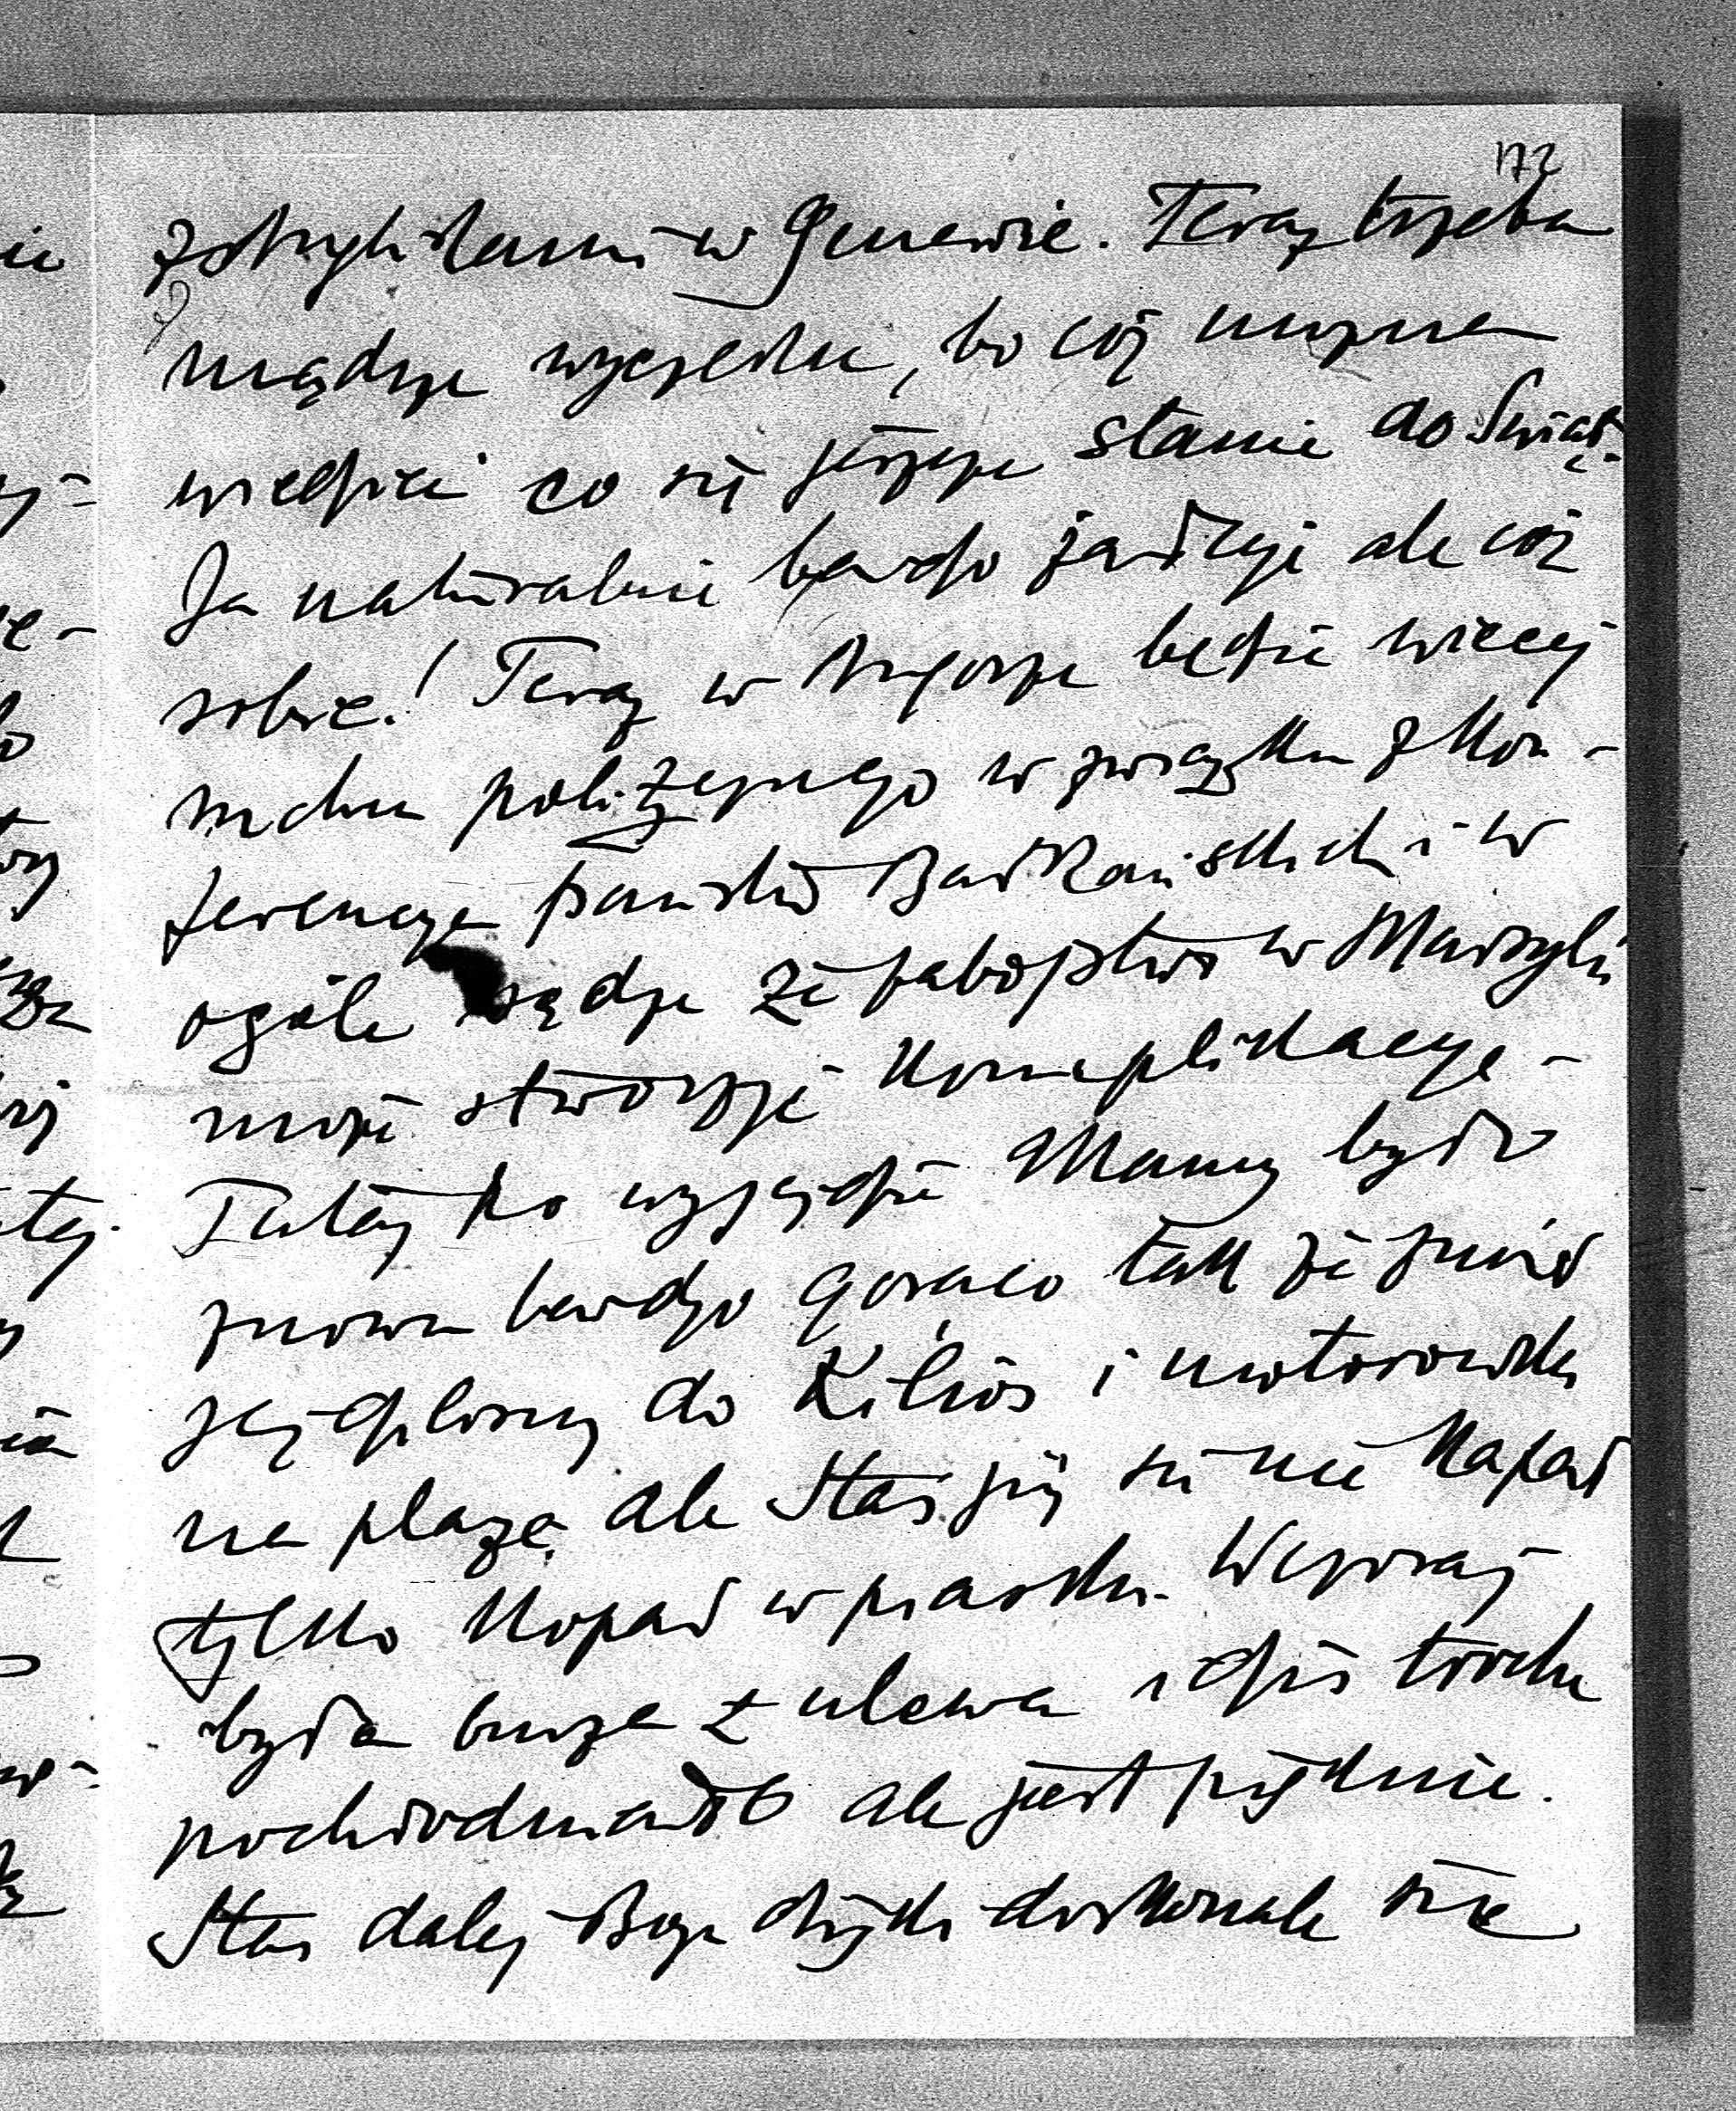 172
z stryjostwem w Genewie. Teraz trzeba
mądrze wyczekać, bo cóż można
wiedzieć co się jeszcze stanie do Świąt.
Ja naturalnie bardzo żałuję ale cóż
robić! Teraz w Angorze będzie więcej
ruchu politycznego w związku z kon-
ferencyą państw Bałkańskich i w
ogóle sądzę że zabójstwo w Marsylii
może stworzyć komplikacye -
Tutaj po wyjeździe Mamy było
znowu bardzo gorąco tak że znów
jeździliśmy do Kilios i motorówką
na plażę, ale Staś już się nie kąpał
tylko kopał w piasku. Wczoraj
była burza z ulewą i dziś trochę
pochłodniało ale jest pięknie.
Staś dalej Bogu dzięki doskonale się